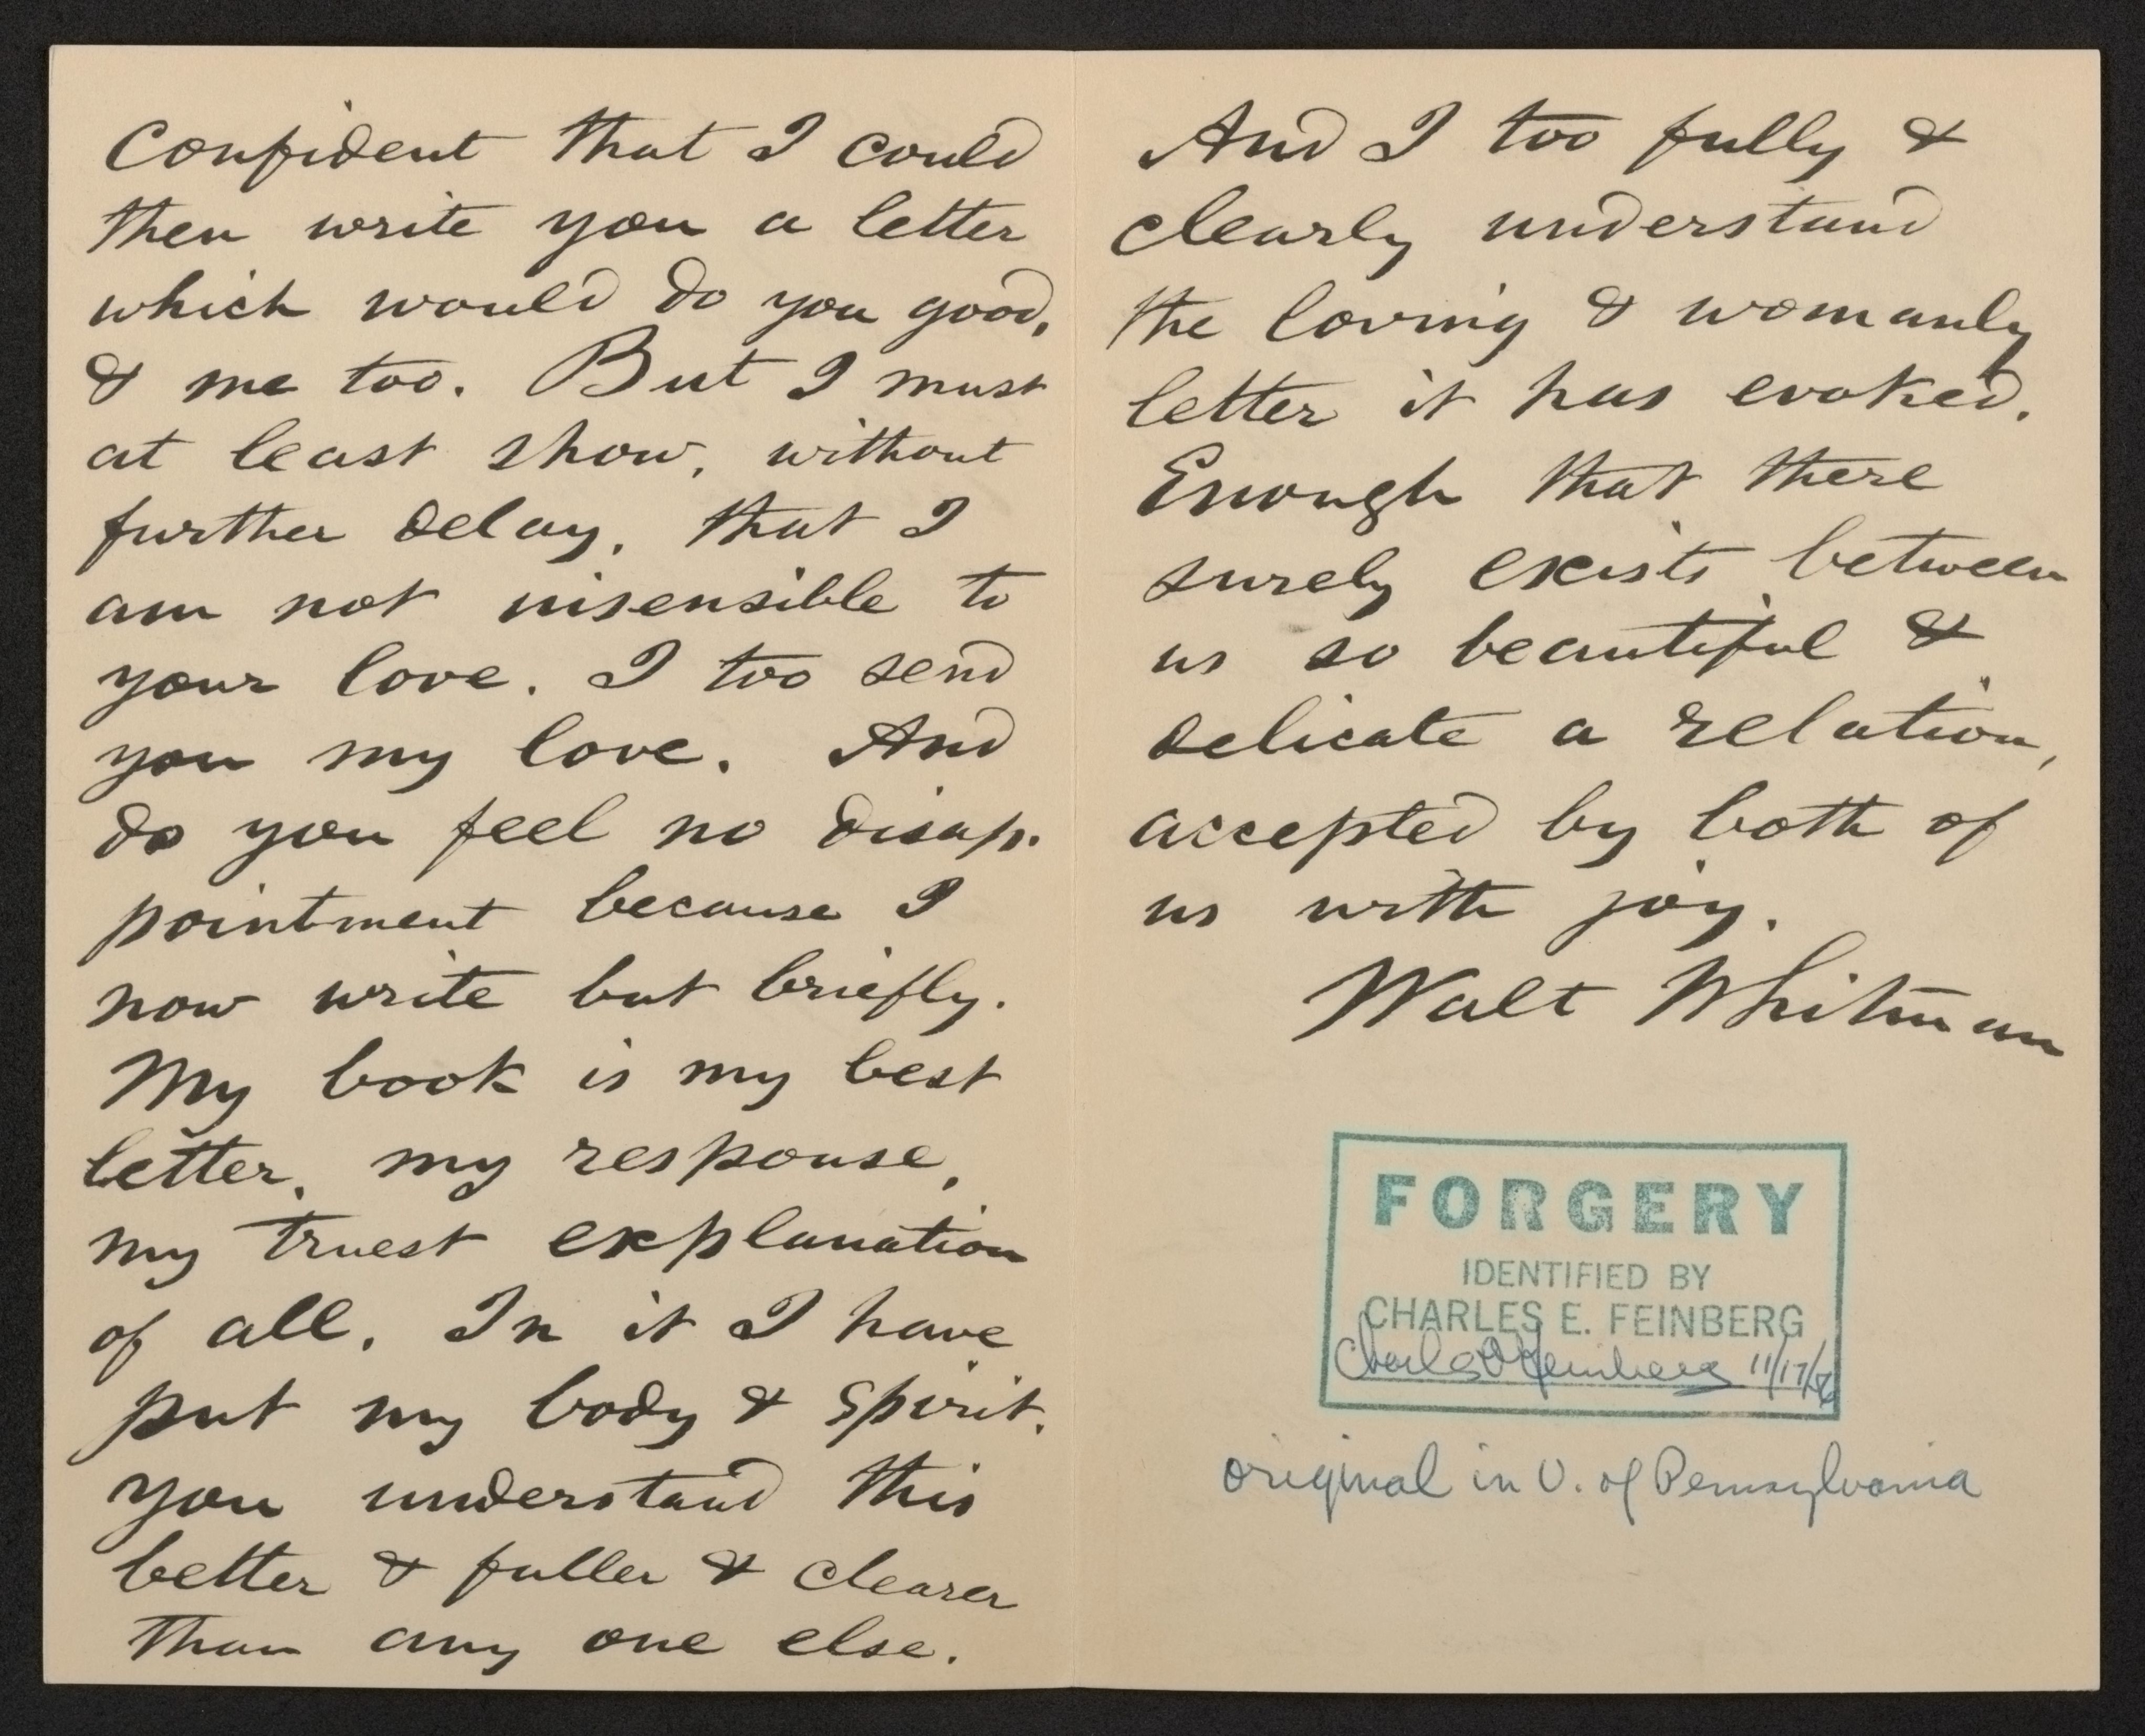 Confident that I could
then write you a letter
which would do you good,
& me too. But I must
at least show, without
further delay, that I
am not insensible to
your love. I too send
you my love. And
do you feel no disap-
pointment because I
now write but briefly.
My book is my best
letter, my response,
my truest explanation
of all. In it I have
put my body & spirit.
you understand this
better & fuller & clearer
than any one else.
And I too fully &
clearly understand
the loving & womanly
letter it has evoked.
Enough that there
surely exists between
us so beautiful &
delicate a relation,
accepted by both of
us with joy.
Walt Whitman
FORGERY
IDENTIFIED BY
CHARLES E. FEINBERG
Charles E Feinberg 11/17/86
original in U. of Pennsylvania